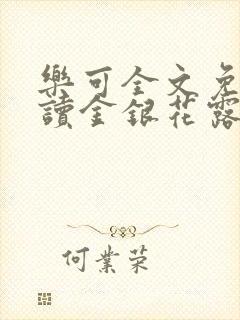 樂可全文免
讀金銀花露
何業榮